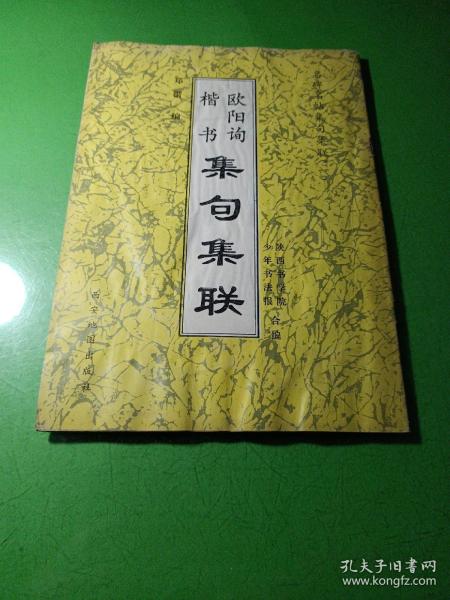 名碑名帖集句集联
欧阳询
楷书
集句集联
编
陕西书学院
少年书法报
合编
西安地图出版社
孔夫子旧书网
www.kongfz.com